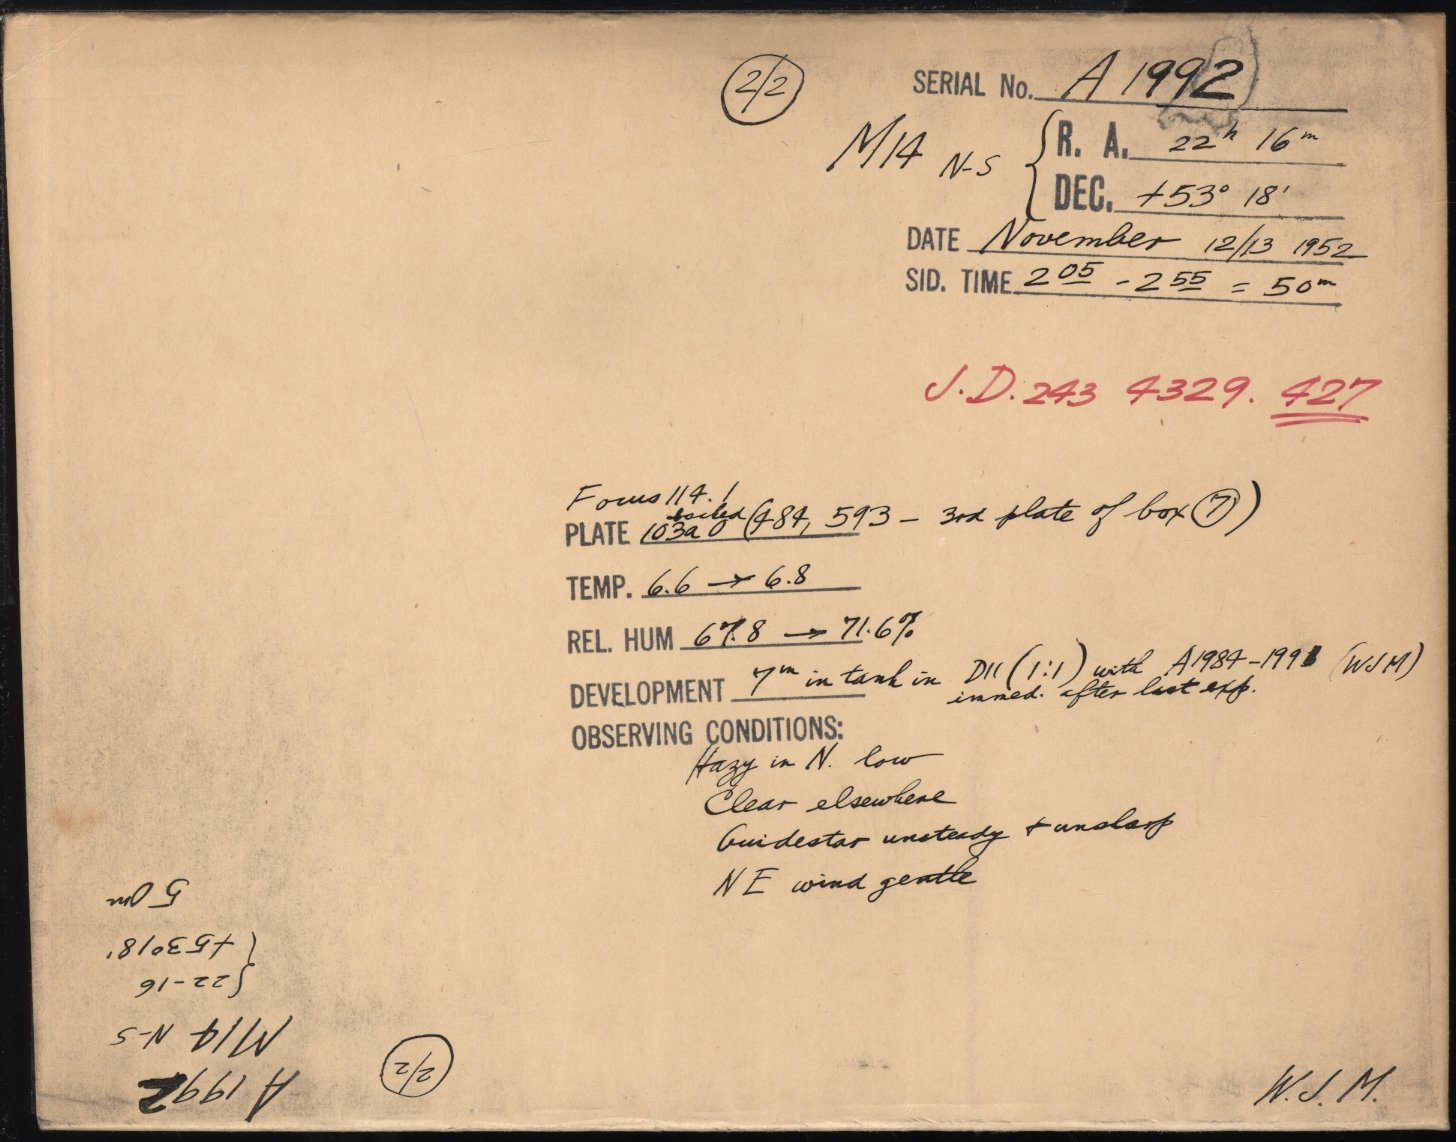 2/2
SERIAL No. A 1992
M14 N-S { R. A. 22h 16m
DEC. +53° 18'
DATE November 12/13 1952
SID. TIME 2 05 - 2 55 = 50m
J.D. 243 4329. 427
Focus 114.1
baked
PLATE 103a O (484, 593 - 3rd plate of box 7)
TEMP. 6.6 → 6.8
REL. HUM 67.8 → 71.6%
DEVELOPMENT 7m in tank in D11 (1:1) with A1984-1991 (WJM)
immed. after last exp.
OBSERVING CONDITIONS:
Hazy in N. low
Clear elsewhere
Guidestar unsteady + unsharp
NE wind gentle
W.J.M.
A 1992
2/2
M14 N-S
{ 22-16
+53°18'
50m